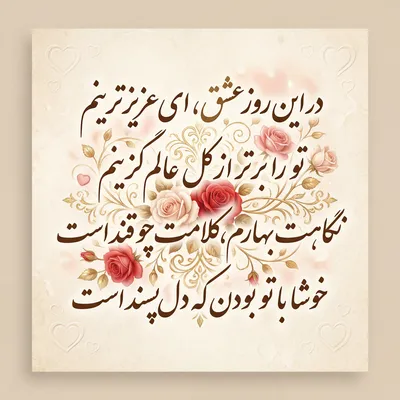 در این روز عشق، ای عزیزترینم
تو را برتر از کل عالم گزینم
نگاهت بهارم، کلامت چو قند است
خوشا با تو بودن که دل پسند است